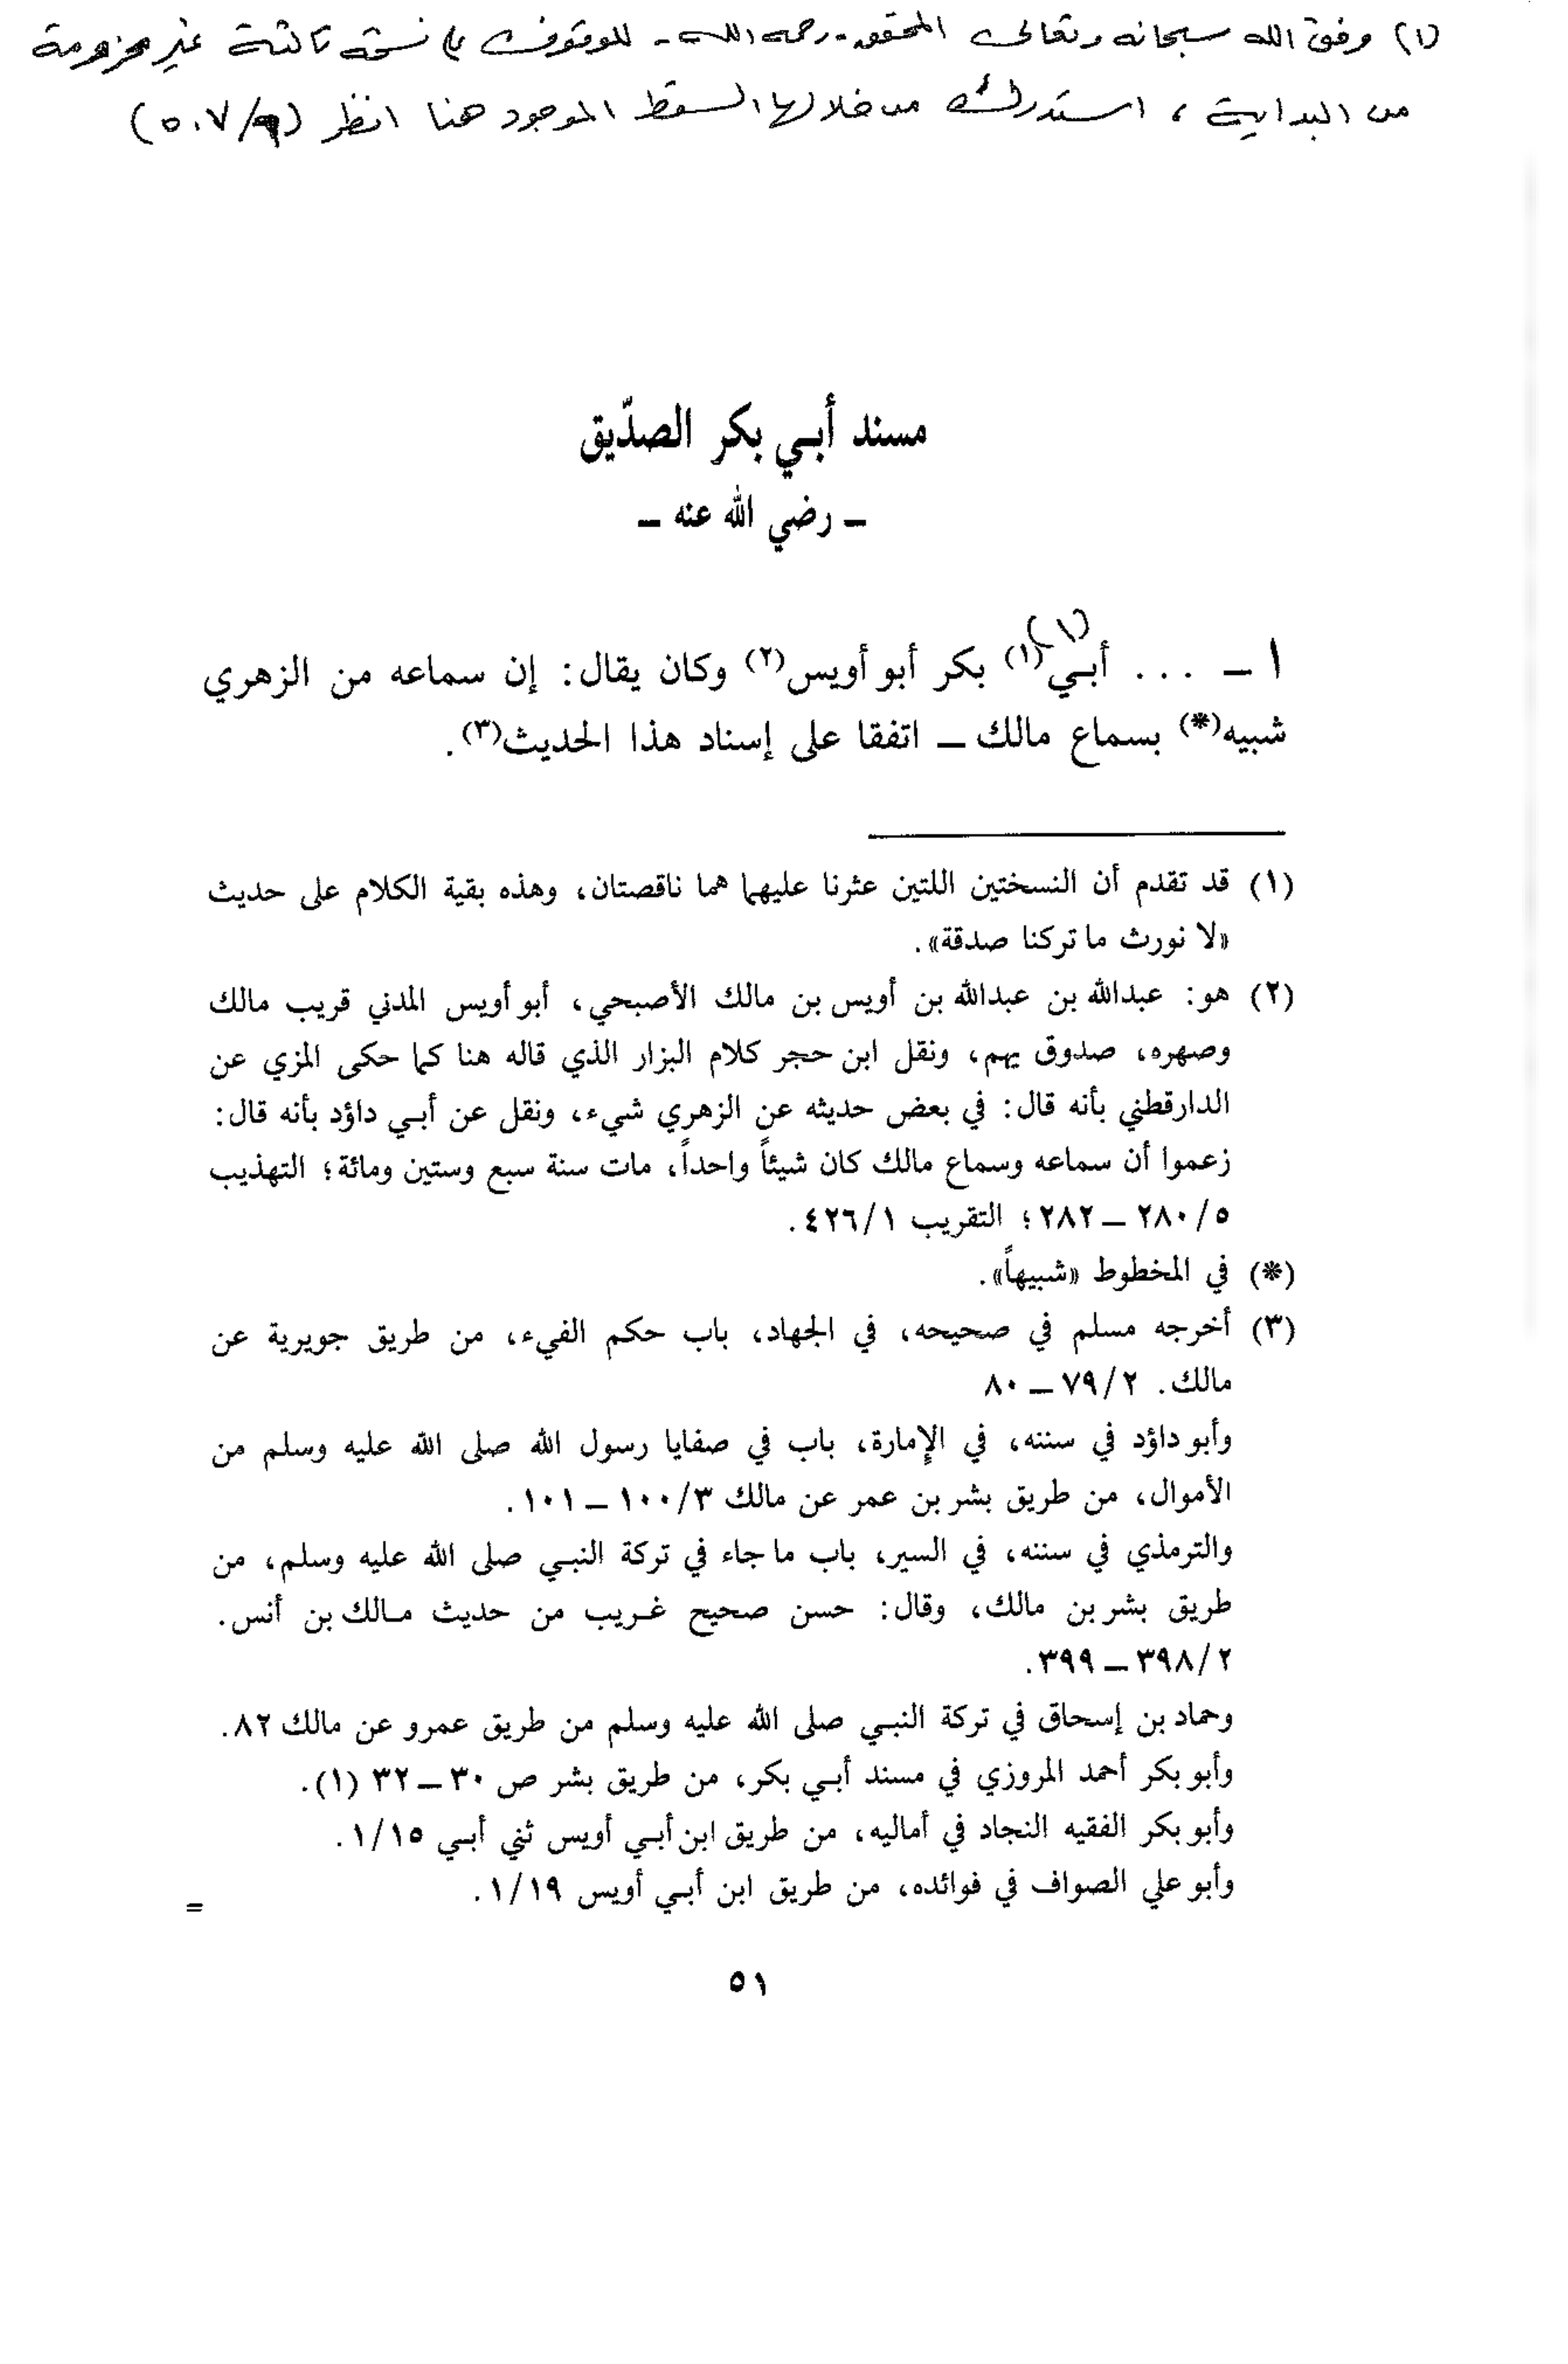 (١) وفق الله سبحانه وتعالى المحقق - رحمه الله - للوقوف على نسخة ثالثة غير مخرومة
من البداية ، استدرك من خلالها السقط الموجود هنا انظر (٥٠٧/٩)
مسند أبي بكر الصدّيق
ــ رضي الله عنه ــ
(١)
١ ــ ... أبي(١) بكر أبو أويس(٢) وكان يقال: إن سماعه من الزهري
شبيه(*) بسماع مالك ــ اتفقا على إسناد هذا الحديث(٣).
(١) قد تقدم أن النسختين اللتين عثرنا عليهما هما ناقصتان، وهذه بقية الكلام على حديث
«لا نورث ما تركنا صدقة».
(٢) هو: عبدالله بن عبدالله بن أويس بن مالك الأصبحي، أبو أويس المدني قريب مالك
وصهره، صدوق يهم، ونقل ابن حجر كلام البزار الذي قاله هنا كما حكى المزي عن
الدارقطني بأنه قال: في بعض حديثه عن الزهري شيء، ونقل عن أبي داؤد بأنه قال:
زعموا أن سماعه وسماع مالك كان شيئاً واحداً، مات سنة سبع وستين ومائة؛ التهذيب
٥/٢٨٠ ــ ٢٨٢؛ التقريب ٤٢٦/١.
(*) في المخطوط «شبيهاً».
(٣) أخرجه مسلم في صحيحه، في الجهاد، باب حكم الفيء، من طريق جويرية عن
مالك. ٢/٧٩ ــ ٨٠
وأبو داؤد في سننه، في الإمارة، باب في صفايا رسول الله صلى الله عليه وسلم من
الأموال، من طريق بشر بن عمر عن مالك ٣/١٠٠ ــ ١٠١.
والترمذي في سننه، في السير، باب ما جاء في تركة النبي صلى الله عليه وسلم، من
طريق بشر بن مالك، وقال: حسن صحيح غريب من حديث مالك بن أنس.
٢/٣٩٨ ــ ٣٩٩.
وحماد بن إسحاق في تركة النبي صلى الله عليه وسلم من طريق عمرو عن مالك ٨٢.
وأبو بكر أحمد المروزي في مسند أبي بكر، من طريق بشر ص ٣٠ ــ ٣٢ (١).
وأبو بكر الفقيه النجاد في أماليه، من طريق ابن أبي أويس ثني أبي ١/١٥.
وأبو علي الصواف في فوائده، من طريق ابن أبي أويس ١/١٩.
=
٥١